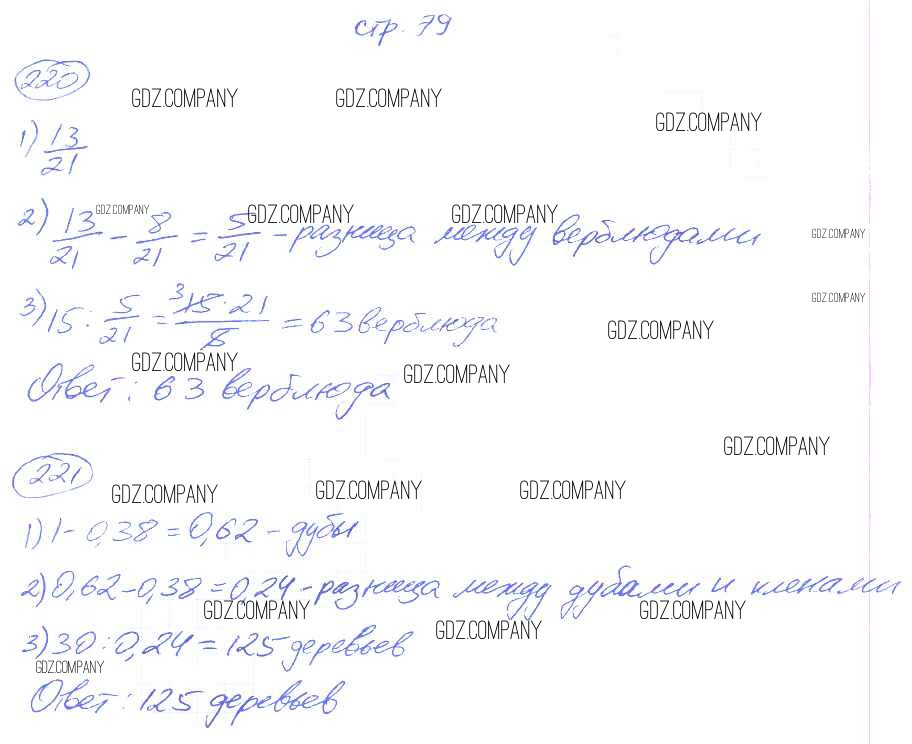 стр. 79
220
GDZ.COMPANY GDZ.COMPANY GDZ.COMPANY
1) 13/21
GDZ.COMPANY GDZ.COMPANY GDZ.COMPANY GDZ.COMPANY
2) 13/21 - 8/21 = 5/21 - разница между верблюдами
GDZ.COMPANY
3) 15 : 5/21 = 3 15 · 21/5 = 63 верблюда
GDZ.COMPANY
GDZ.COMPANY GDZ.COMPANY
Ответ: 63 верблюда
GDZ.COMPANY
221
GDZ.COMPANY GDZ.COMPANY GDZ.COMPANY
1) 1 - 0,38 = 0,62 - дубы
2) 0,62 - 0,38 = 0,24 - разница между дубами и кленами
GDZ.COMPANY GDZ.COMPANY GDZ.COMPANY
3) 30 : 0,24 = 125 деревьев
GDZ.COMPANY
Ответ: 125 деревьев